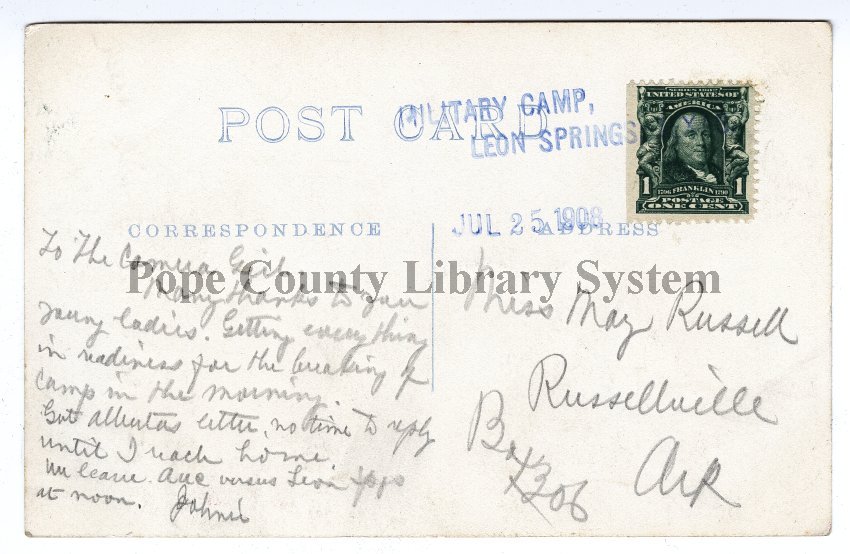 POST CARD
MILITARY CAMP,
LEON SPRINGS
SERIES 1902
UNITED STATES OF
AMERICA
1 1706 FRANKLIN 1790 1
POSTAGE
ONE CENT
JUL 25 1908
CORRESPONDENCE
ADDRESS
Pope County Library System
To The Camera Girl
Many thanks to you
young ladies. Getting everything
in readiness for the breaking of
camp in the morning.
Got Albertas letter, no time to reply
until I reach home
We leave versus Leon Spgs
at noon. Johnie
Miss May Russell
Russellville
Box 306 Ark